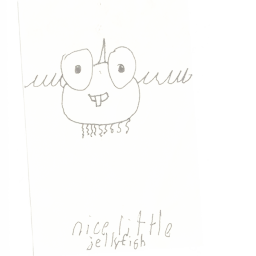 nice little
jellyfish